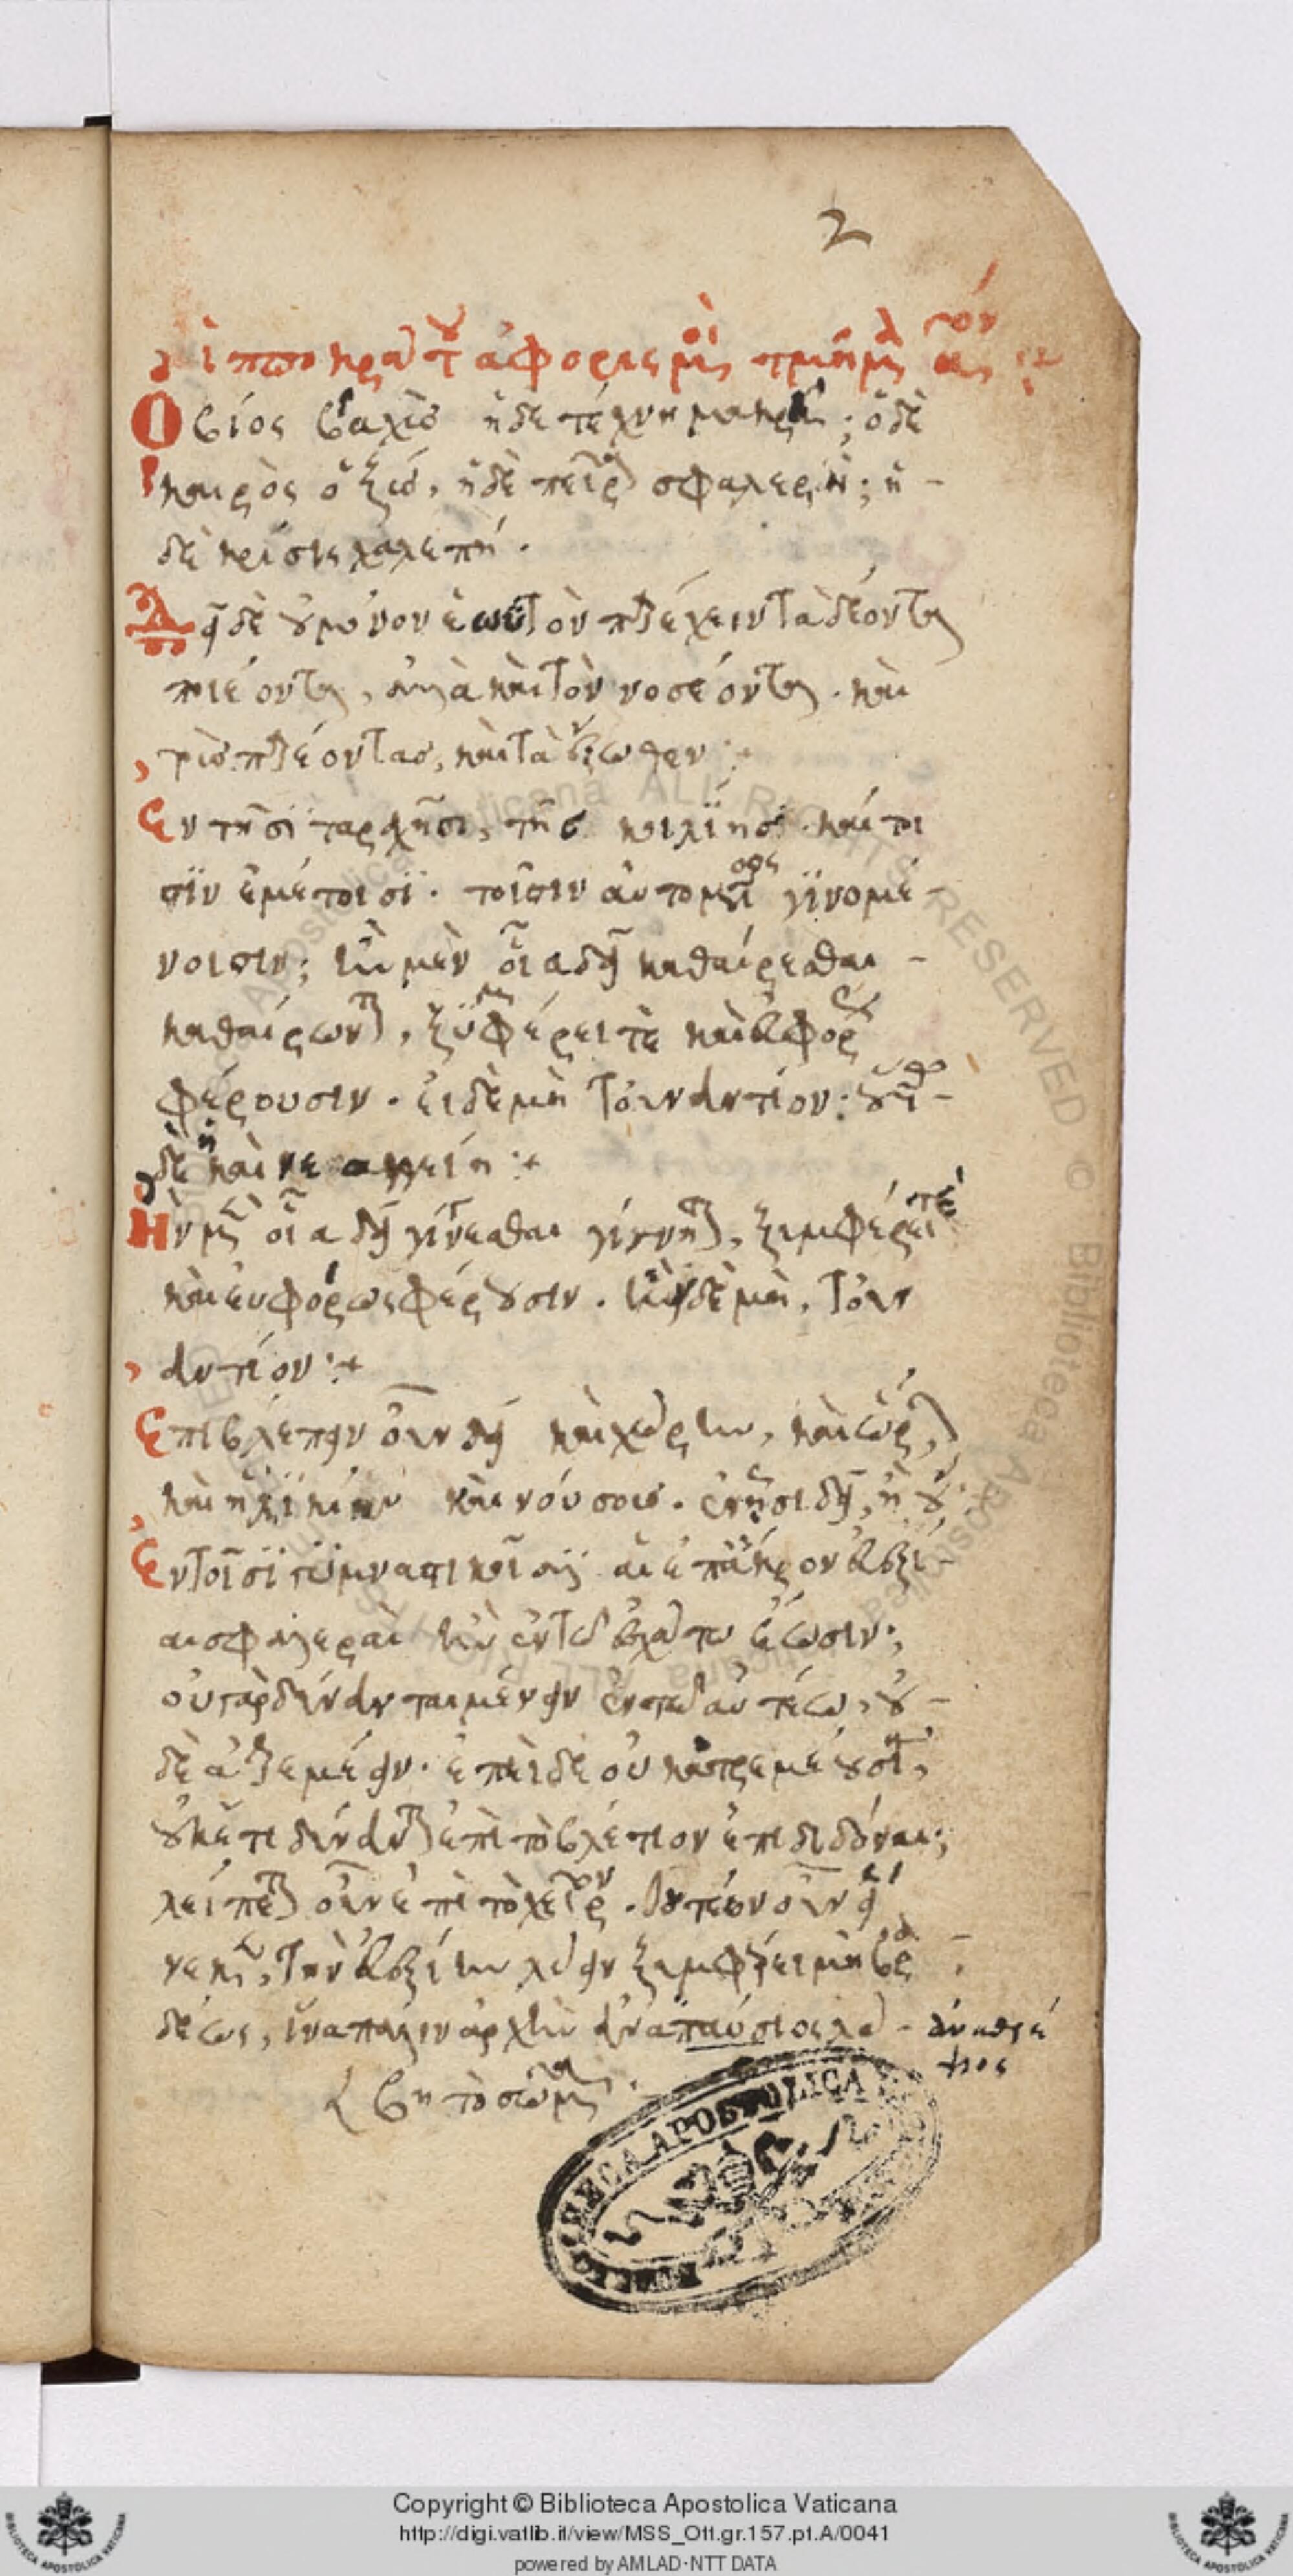 2
ἱπποκράτου ἀφορισμοὶ τμῆμα πρῶτον
Ὁ βίος βραχὺσ ἡ δὲ τέχνη μακρὴ; ὁ δὲ
καιρὸς ὀξύσ, ἡ δὲ πεῖρα σφαλερή; ἡ -
δὲ κρίσις χαλεπή.
Δεῖ δὲ οὐ μόνον ἑωυτὸν παρέχειν τὰ δέοντα
ποιέοντα, ἀλλὰ καὶ τὸν νοσέοντα. καὶ
τοὺσ παρεόντασ, καὶ τὰ ἔξωθεν :+
Εν τῆσϊ ταραχῆσι, τῆσ κοιλίησ. καὶ τοι
σϊν ἐμέτοισϊ. τοῖσιν αὐτομάτως γϊνομέ
νοισιν; ἢν μὲν οἷα δεῖ καθαίρεσθαι -
καθαίρωνται, ξυμφέρει τὲ καὶ εὐφόρως
φέρουσιν. εἰ δὲ μὴ τοὐναντίον: οὕτω -
δὲ ἢ καὶ κενεαγγείη :+
Ην μὲν οἷα δεῖ γίνεσθαι γίνηται, ξυμφέρει τὲ
καὶ εὐφόρως φέρουσιν. ἢν δὲ μὴ, τοὐν
αντίον :+
Επιβλέπειν οὖν δεῖ καὶ χώρην, καὶ ὥρην
καὶ ἡλϊκίην καὶ νούσουσ. ἐν ᾗσι δεῖ, ἢ οὔ.
Εν τοῖσϊ γυμναστικοῖσιν αἱ ἐπάκρον εὐεξί-
αι σφαλεραὶ ἢν ἐν τῶ ἐσχάτω ἔωσιν;
οὐ γὰρ δύνανται μένειν ἐν τῶ αὐτέω, οὐ -
δὲ ἀτρεμέειν. ἐπεὶ δὲ οὐκ ἀτρεμέουσιν,
οὐκέτι δύνανται ἐπὶ τὸ βέλτιον ἐπιδιδόναι;
λείπεται οὖν ἐπὶ τὸ χεῖρον. τουτέων οὖν εἵ
νεκεν, τὴν εὐεξίην λύειν ξυμφέρει μὴ βρα -
δέως, ἵνα πάλιν ἀρχὴν ἀναπαύσιος λα - ἀναθρέ
ψιος
{ βη τὸ σῶμα.
BIBLIOTHECA APOSTOLICA VATICANA
Copyright © Biblioteca Apostolica Vaticana
http://digi.vatlib.it/view/MSS_Ott.gr.157.pt.A/0041
powered by AMLAD-NTT DATA